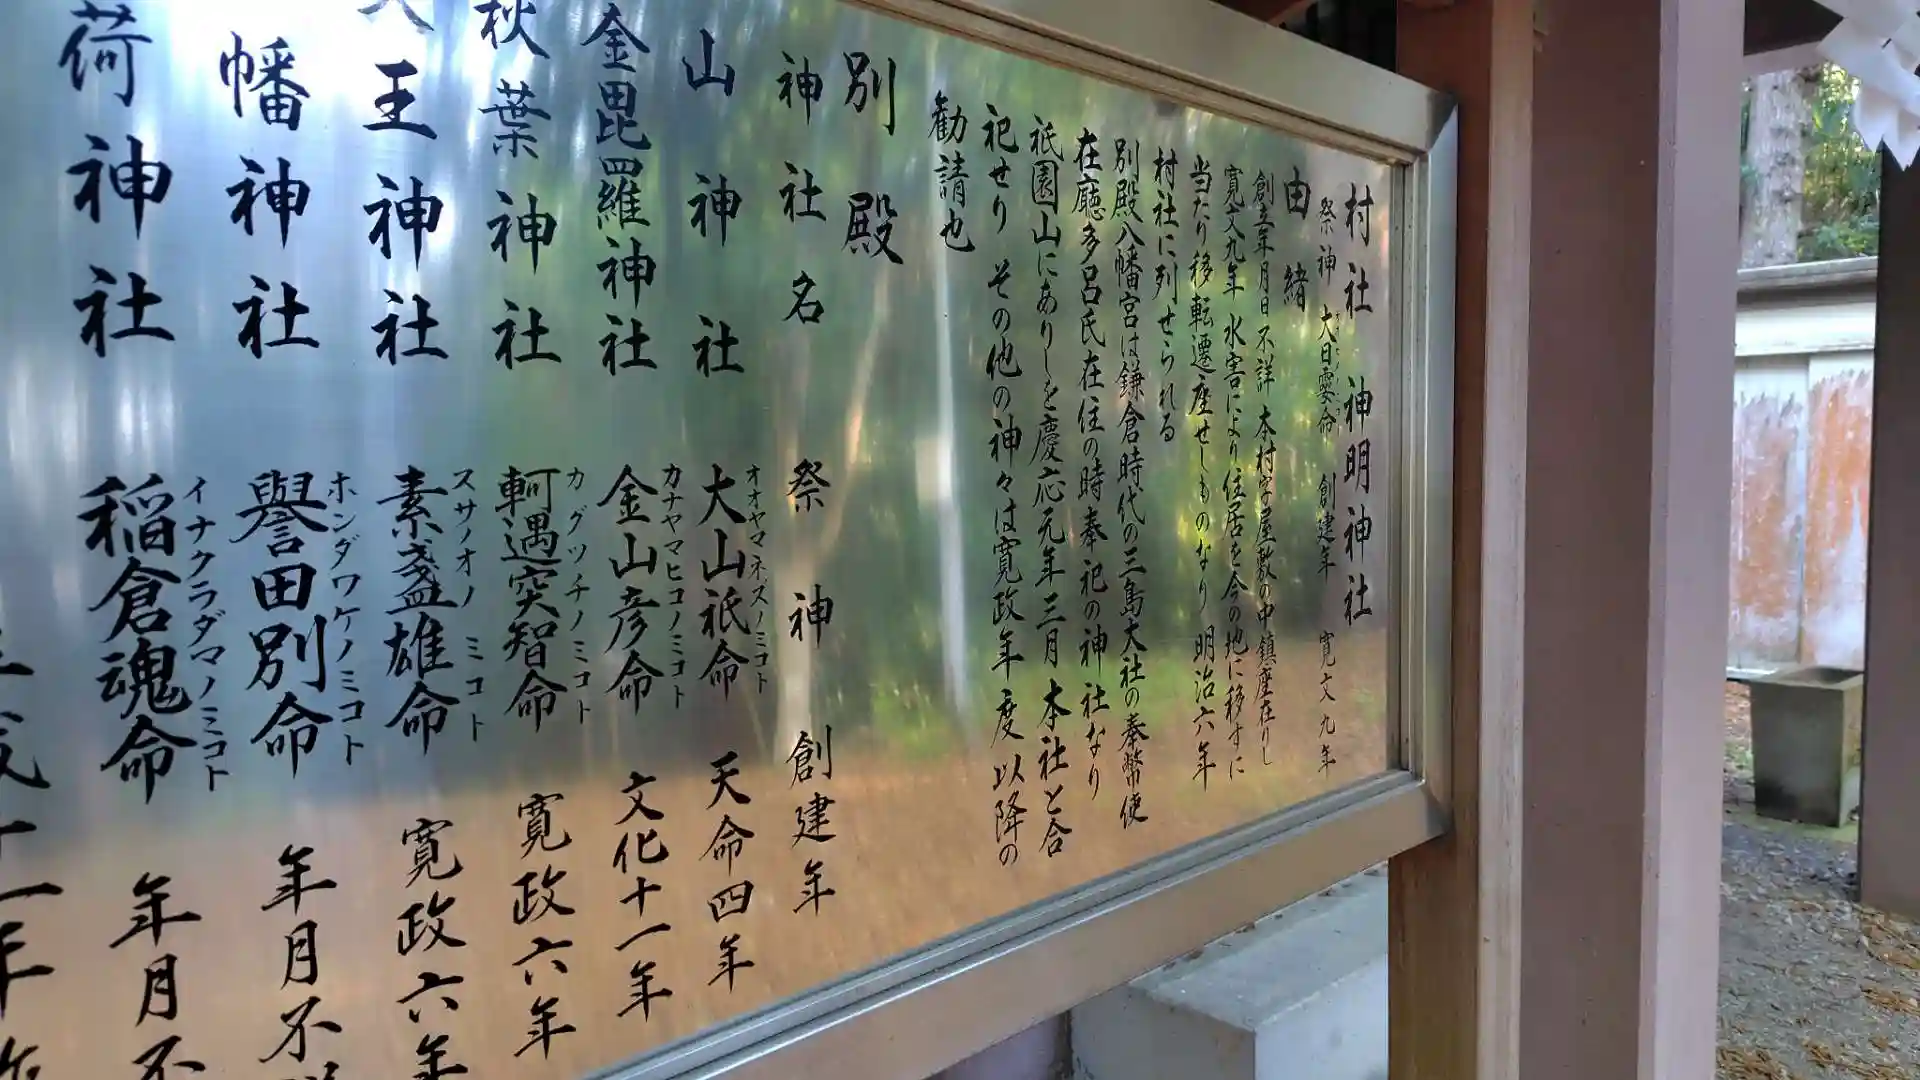 村社 神明神社
祭神 大日孁命 創建年 寛文九年
由緒
創立年月日不詳 本村字屋敷の中鎮座在りし
寛文九年 水害により住居を今の地に移すに
当たり移転遷座せしものなり 明治六年
村社に列せられる
別殿八幡宮は鎌倉時代の三島大社の奉幣使
在廳多呂氏在住の時奉祀の神社なり
祇園山にありしを慶応元年三月 本社と合
祀せり その他の神々は寛政年度以降の
勧請也
別殿
神社名 祭神 創建年
山神社 大山祇命 オオヤマネズノミコト 天命四年
金毘羅神社 金山彦命 カナヤマヒコノミコト 文化十一年
秋葉神社 軻遇突智命 カグツチノミコト 寛政六年
天王神社 素盞雄命 スサノオノミコト 寛政六年
幡神社 譽田別命 ホンダワケノミコト 年月不
荷神社 稲倉魂命 イナクラダマノミコト 年月不
十一年